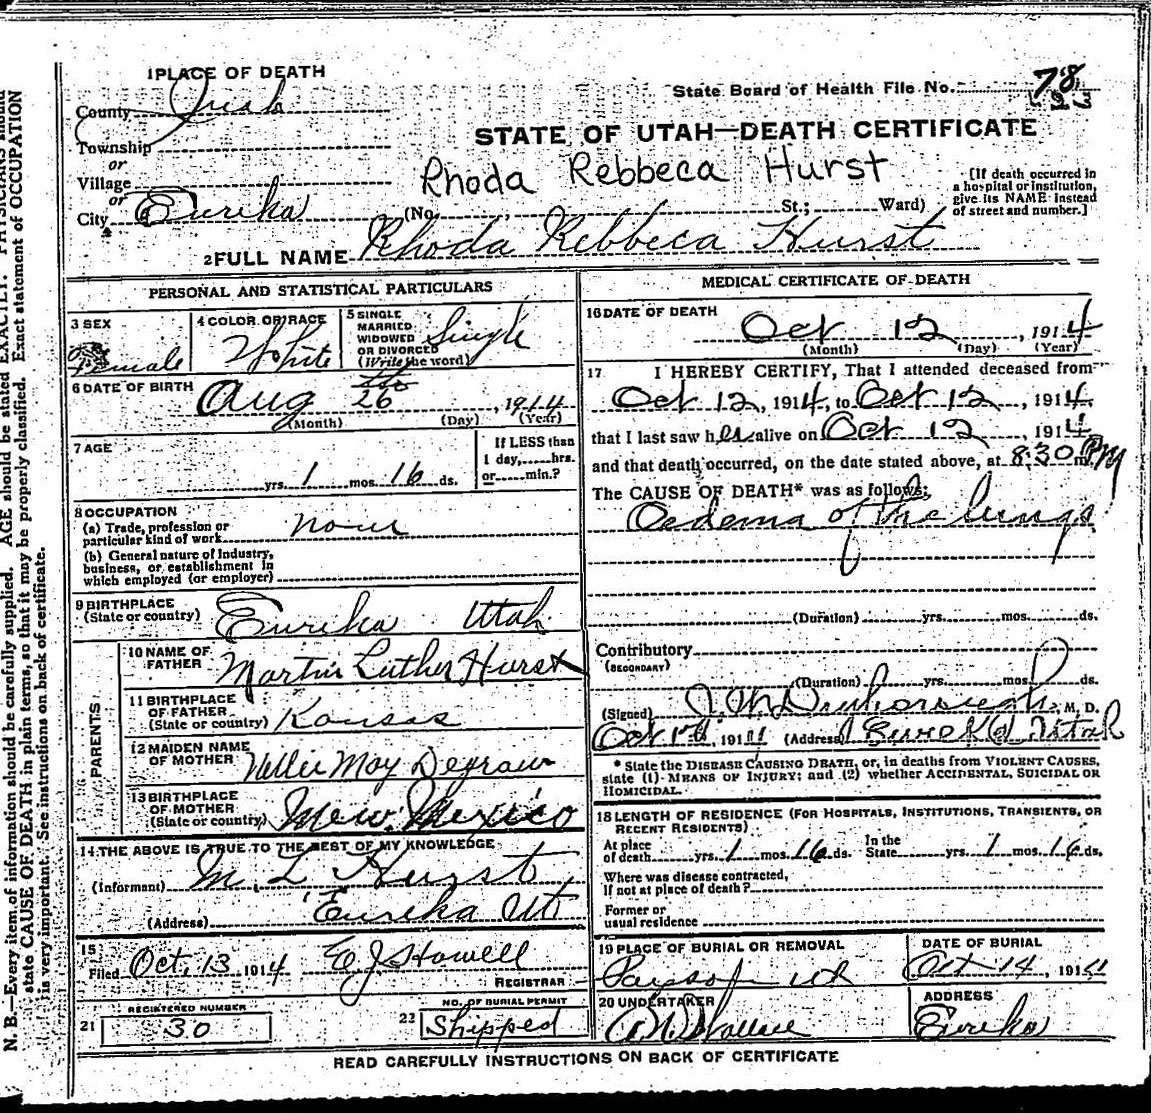 N. B.—Every item of information should be carefully supplied. AGE should be stated EXACTLY. PHYSICIANS should
state CAUSE OF DEATH in plain terms, so that it may be properly classified. Exact statement of OCCUPATION
is very important. See instructions on back of certificate.
1 PLACE OF DEATH
County Juab
Township
or
Village
or
City Eureka
State Board of Health File No. 78
STATE OF UTAH—DEATH CERTIFICATE
Rhoda Rebbeca Hurst
(No. , St.; Ward)
[If death occurred in
a hospital or institution,
give its NAME instead
of street and number.]
2 FULL NAME Rhoda Rebbeca Hurst
PERSONAL AND STATISTICAL PARTICULARS
3 SEX Female
4 COLOR OR RACE White
5 SINGLE
MARRIED
WIDOWED
OR DIVORCED
(Write the word) Single
6 DATE OF BIRTH Aug 26, 1914
(Month) (Day) (Year)
7 AGE
yrs. 1 mos. 16 ds.
If LESS than
1 day, hrs.
or min.?
8 OCCUPATION
(a) Trade, profession or
particular kind of work
(b) General nature of industry,
business, or establishment in
which employed (or employer)
9 BIRTHPLACE
(State or country) Eureka Utah
PARENTS
10 NAME OF
FATHER Martin Luther Hurst
11 BIRTHPLACE
OF FATHER
(State or country) Kansas
12 MAIDEN NAME
OF MOTHER May Degraw
13 BIRTHPLACE
OF MOTHER
(State or country) New Mexico
14 THE ABOVE IS TRUE TO THE BEST OF MY KNOWLEDGE
(Informant) M. L Hurst
(Address) Eureka Ut
15
Filed Oct, 13 1914 E J Howell
REGISTRAR
21 REGISTERED NUMBER
30
22 NO. OF BURIAL PERMIT
Shipped
MEDICAL CERTIFICATE OF DEATH
16 DATE OF DEATH
Oct 12, 1914
(Month) (Day) (Year)
17 I HEREBY CERTIFY, That I attended deceased from
Oct 12, 1914, to Oct 12, 1914,
that I last saw her alive on Oct 12, 1914
and that death occurred, on the date stated above, at 8:30 m. PM
The CAUSE OF DEATH* was as follows:
Oedema of the lungs
(Duration) yrs. mos. ds.
Contributory
(SECONDARY)
(Duration) yrs. mos. ds.
(Signed) M. D.
Oct 191 (Address) Eureka Utah
* State the DISEASE CAUSING DEATH, or, in deaths from VIOLENT CAUSES,
state (1) MEANS OF INJURY; and (2) whether ACCIDENTAL, SUICIDAL OR
HOMICIDAL.
18 LENGTH OF RESIDENCE (FOR HOSPITALS, INSTITUTIONS, TRANSIENTS, OR
RECENT RESIDENTS)
At place
of death yrs. 1 mos. 16 ds. In the
State yrs. 1 mos. 16 ds.
Where was disease contracted,
If not at place of death?
Former or
usual residence
19 PLACE OF BURIAL OR REMOVAL
Payson
DATE OF BURIAL
Oct 14, 191
20 UNDERTAKER
Wallace
ADDRESS
Eureka
READ CAREFULLY INSTRUCTIONS ON BACK OF CERTIFICATE